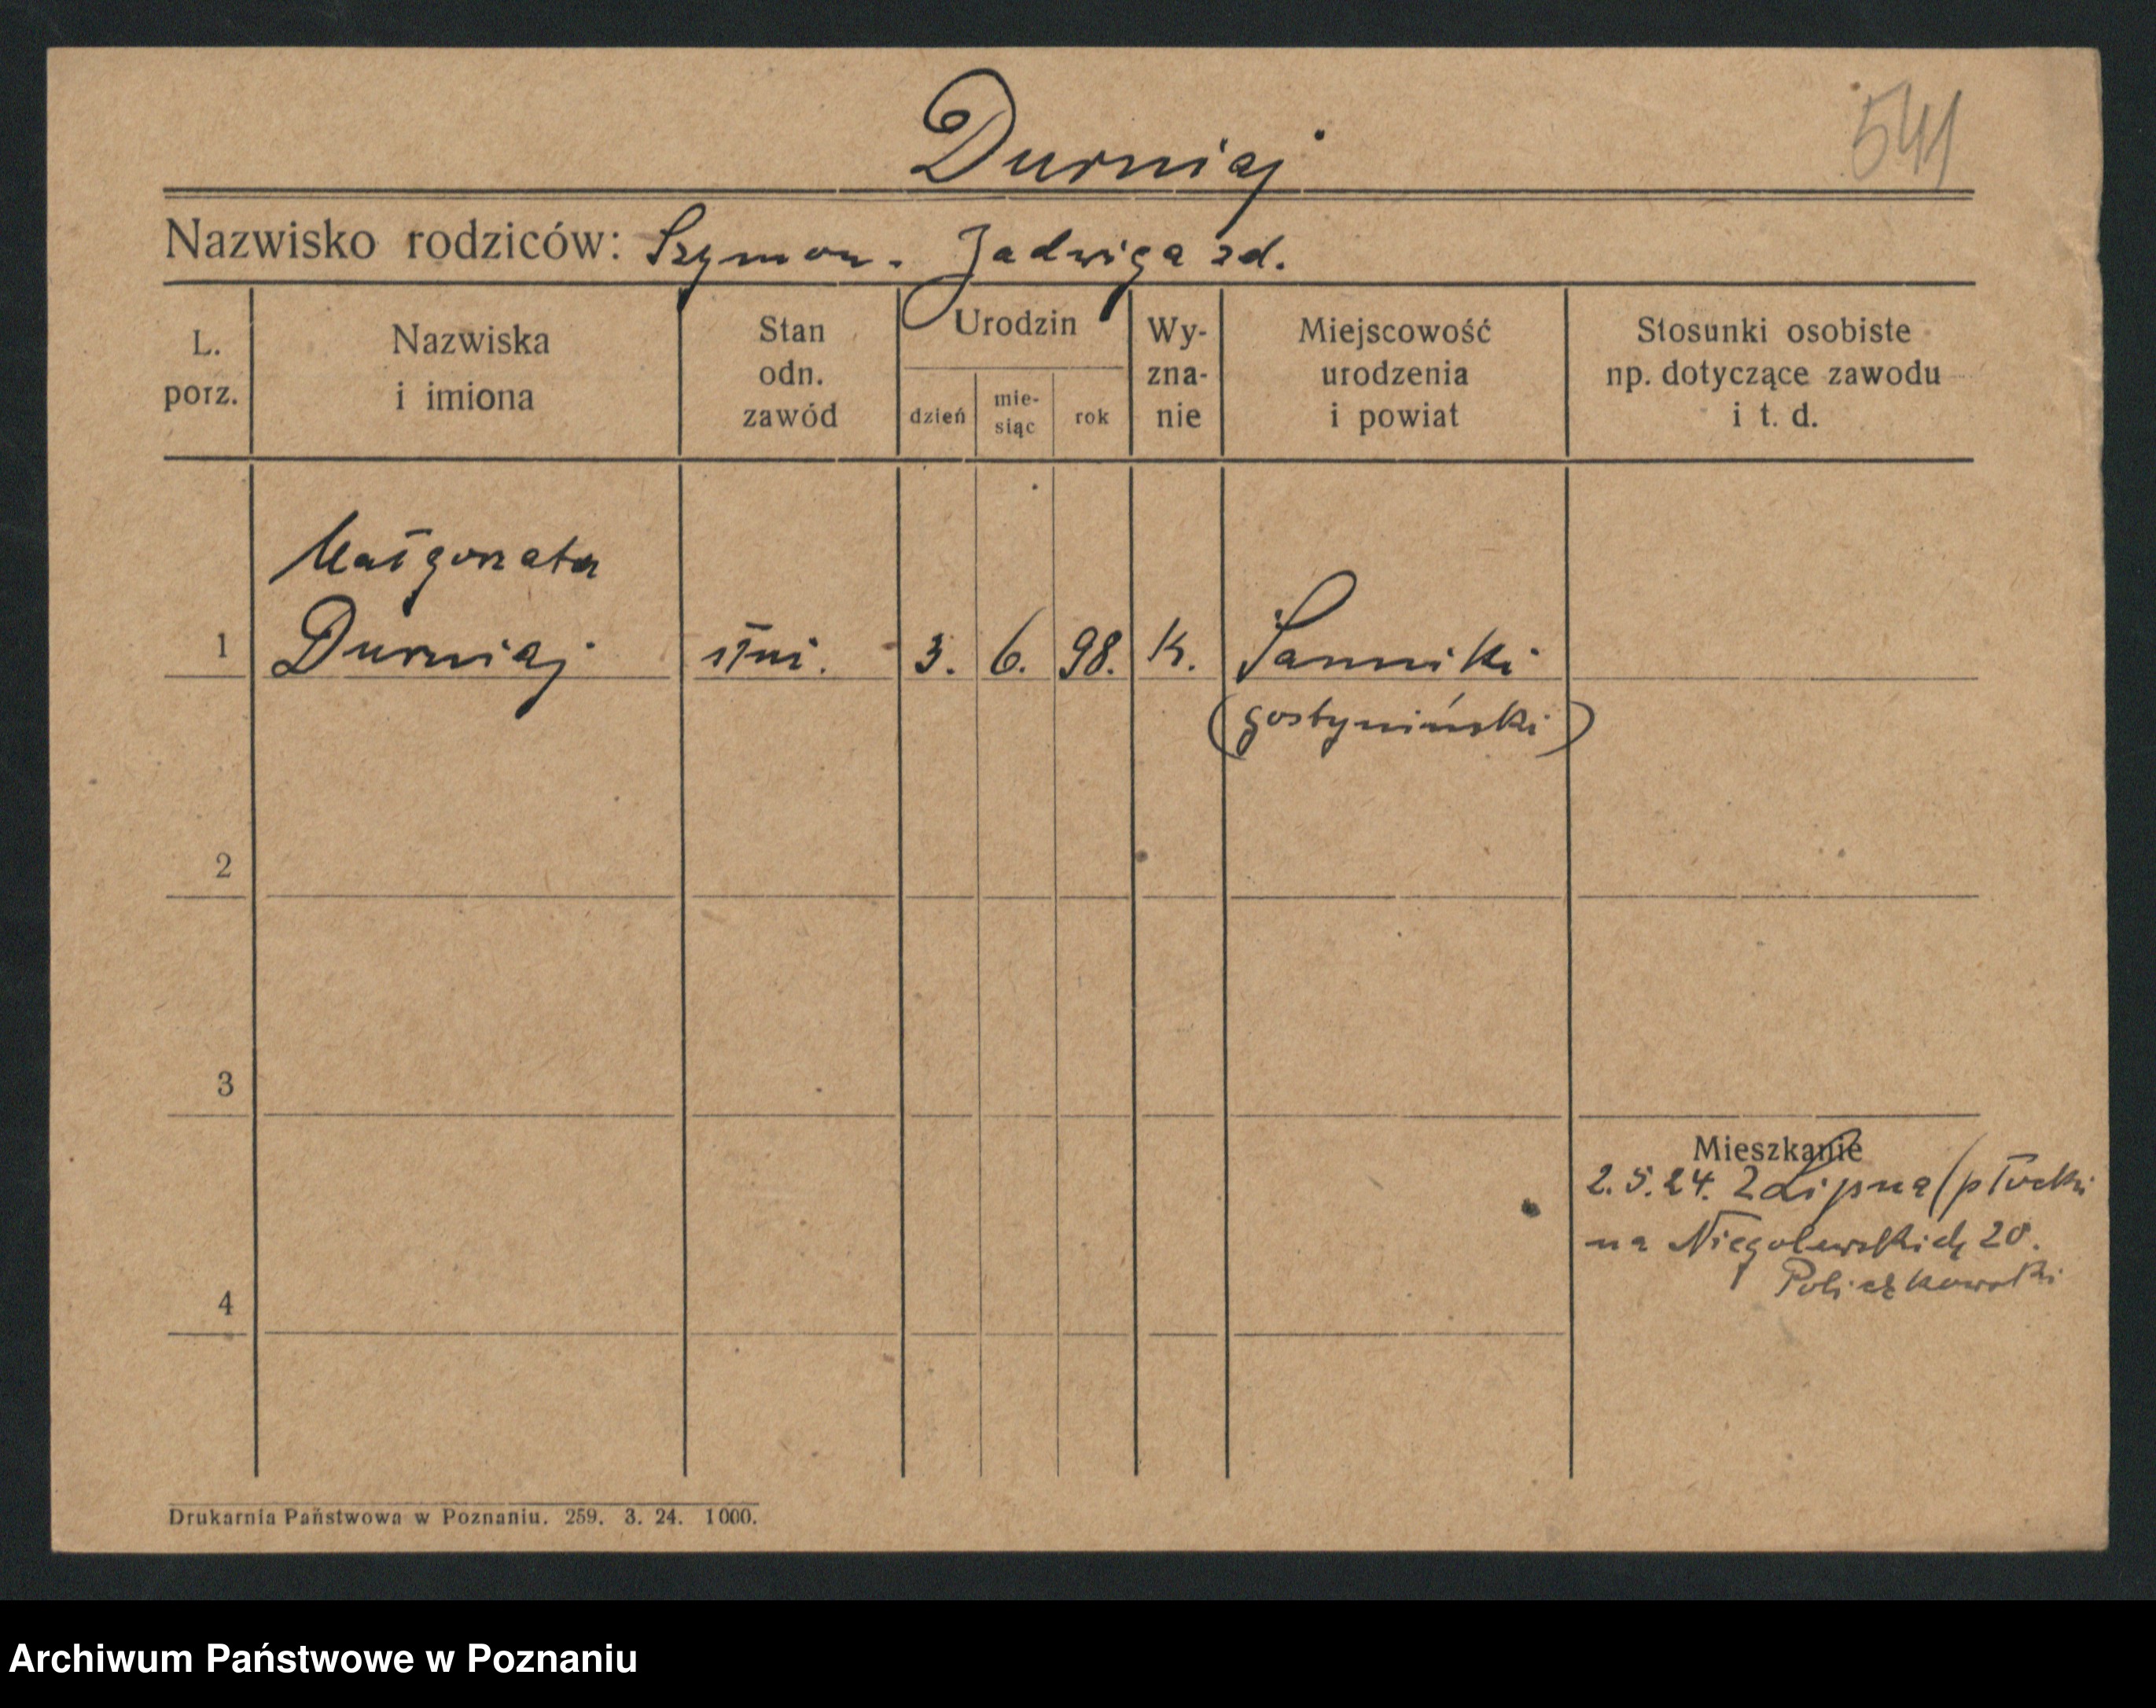 Durniaj
541
Nazwisko rodziców: Szymon. Jadwiga zd.
L. porz.
Nazwiska i imiona
Stan odn. zawód
Urodzin
dzień
mie-
siąc
rok
Wy-
zna-
nie
Miejscowość
urodzenia
i powiat
Stosunki osobiste
np. dotyczące zawodu
i t. d.
Małgorzata
1 Durniaj służ. 3. 6. 98. K. Sanniki
(gostyniński)
2
3
Mieszkanie
2.5.24. z Lipna (płocki
na Niegolewskich 20.
4
Drukarnia Państwowa w Poznaniu. 259. 3. 24. 1000.
Archiwum Państwowe w Poznaniu